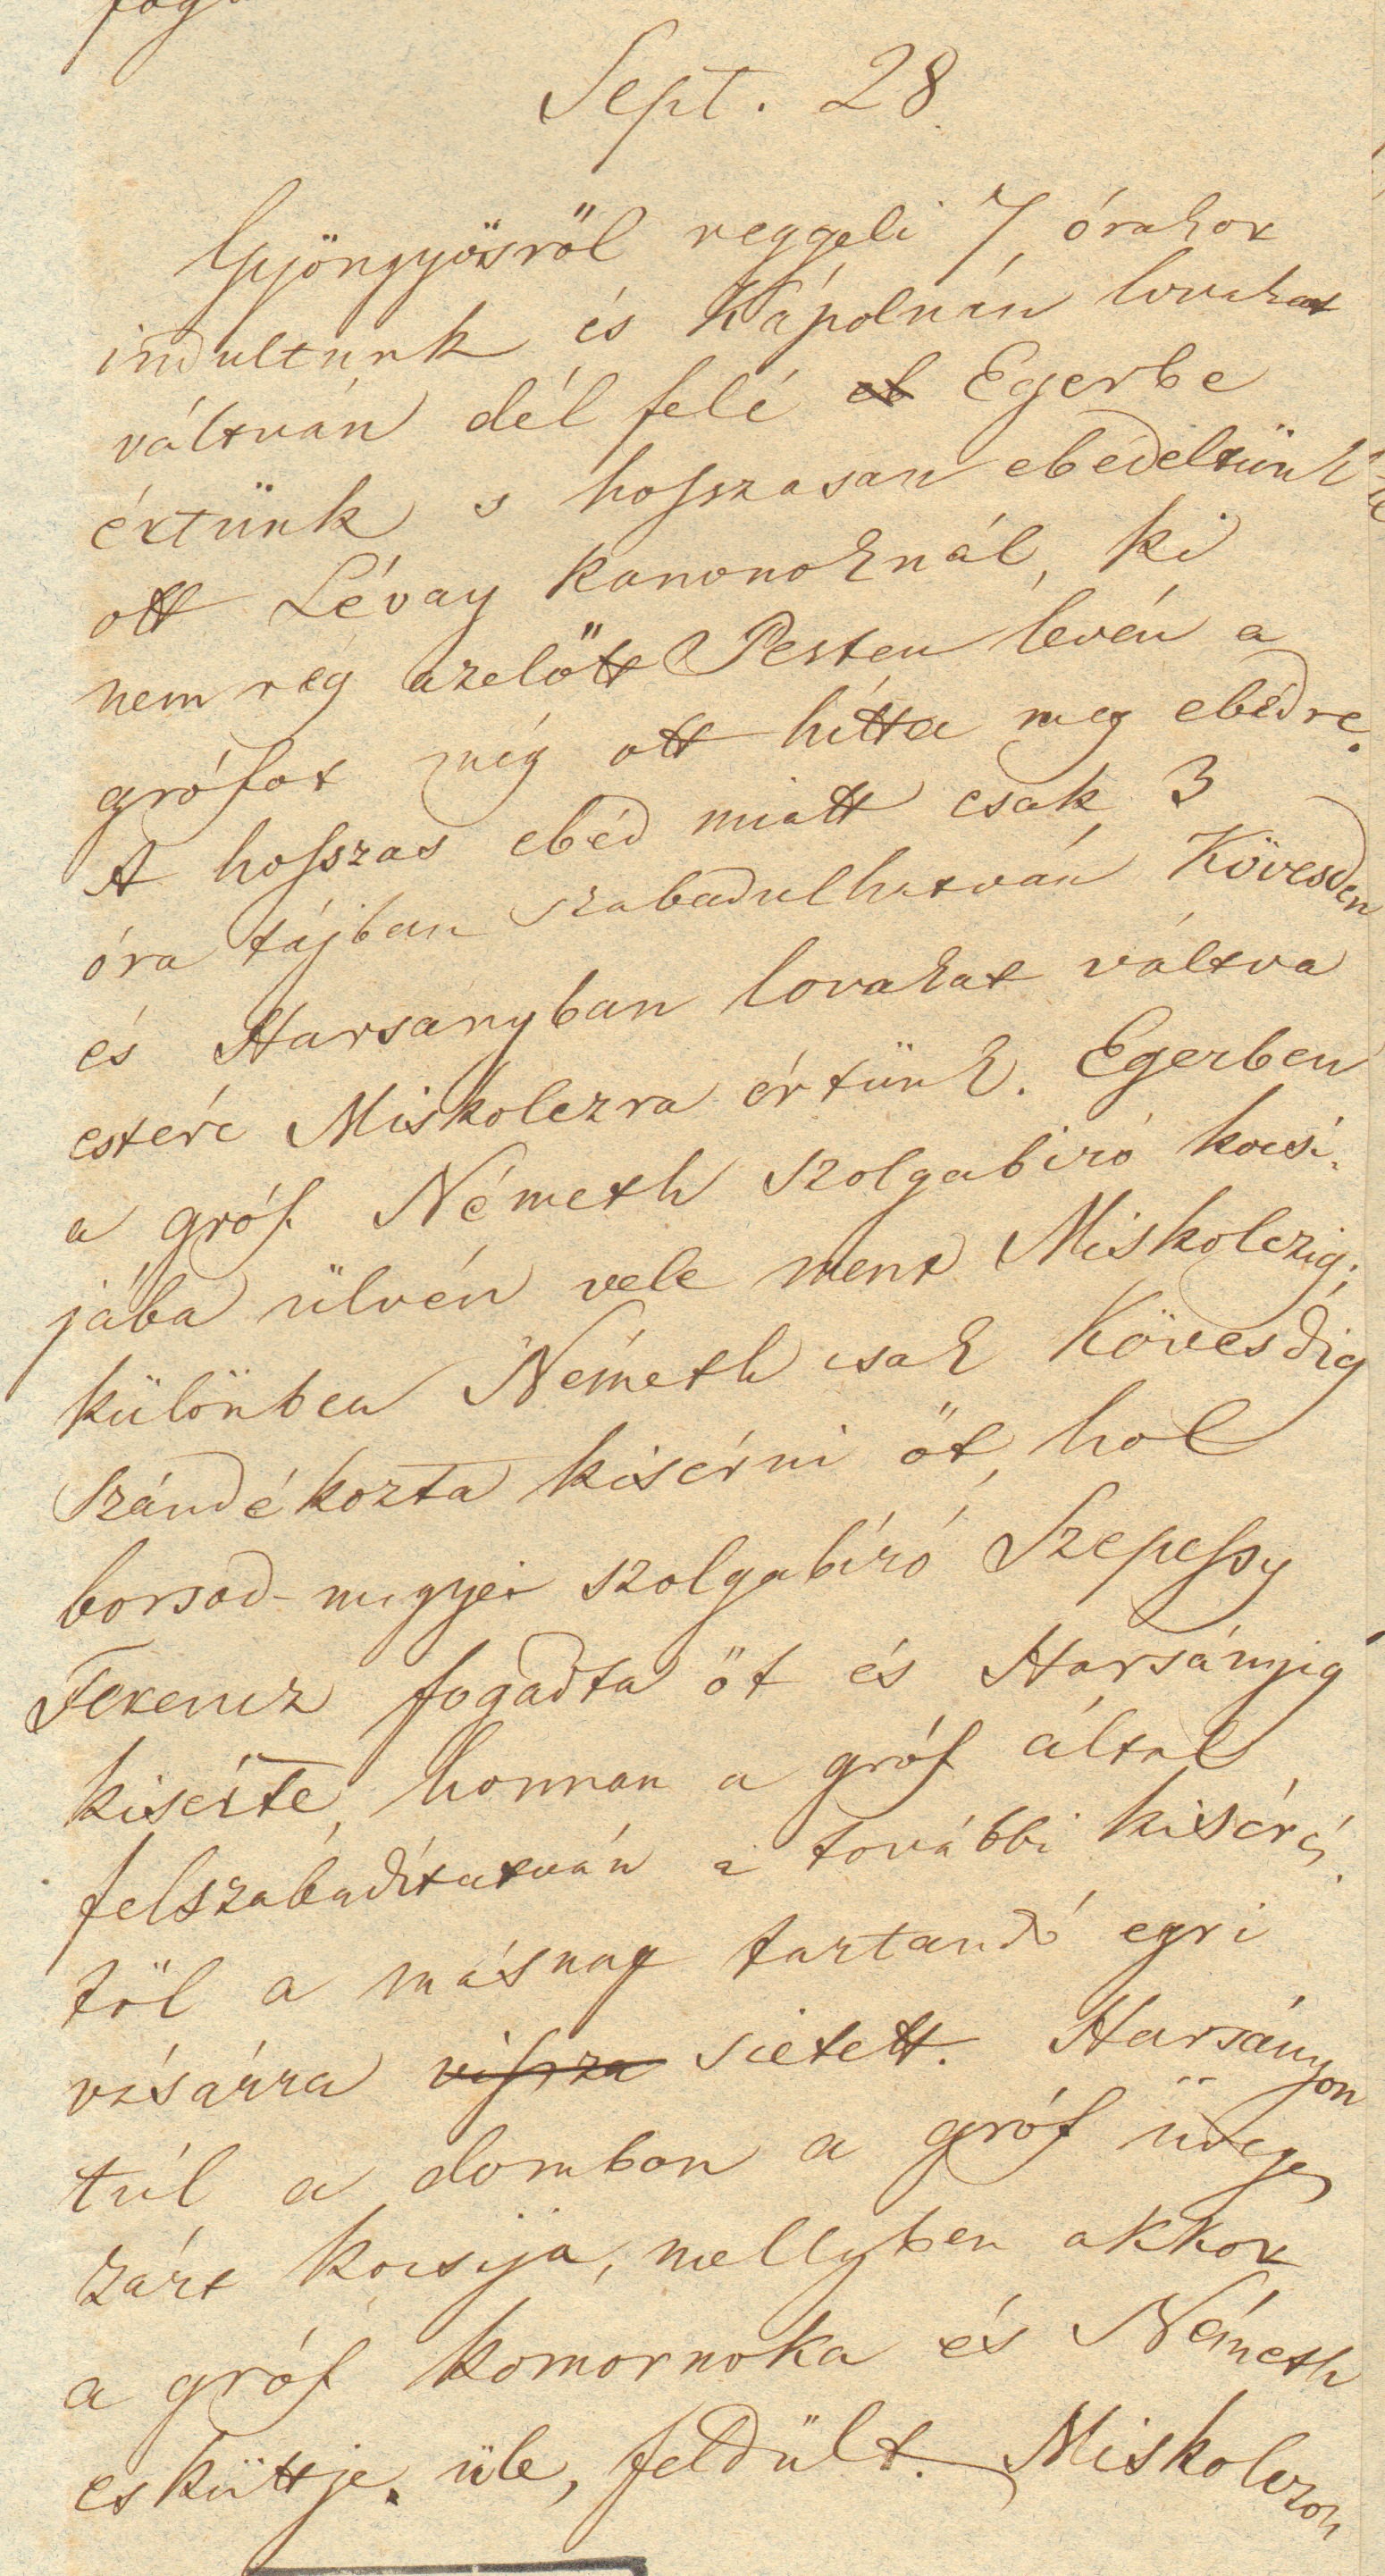 Sept. 28.
Gyöngyösről reggeli 7 órakor
indultunk és Kápolnán lovakat
váltván dél felé eb Egerbe
értünk s hosszasan ebédeltünk
ott Lévay kanonoknál, ki
nem rég azelőtt Pesten lévén a
grófot még ott hítta meg ebédre.
A hosszas ebéd miatt csak 3
óra tájban szabadulhatván Kövesden
és Harsányban lovakat váltva
estére Miskolczra értünk. Egerben
a gróf Németh szolgabiró kocsi-
jába ülvén vele ment Miskolczig;
különben Németh csak Kövesdig
szándékozta kisérni őt, hol
borsod-megyei szolgabíró Szepessy
Ferencz fogadta őt és Harsányig
kisérte, honnan a gróf által
felszabadítatván a további kisérés-
től a másnap tartandó egri
vásárra vissza sietett. Harsányon
túl a dombon a gróf üveges
zárt kocsija, mellyben akkor
a gróf komornoka és Németh
esküttje üle, feldült. Miskolczon